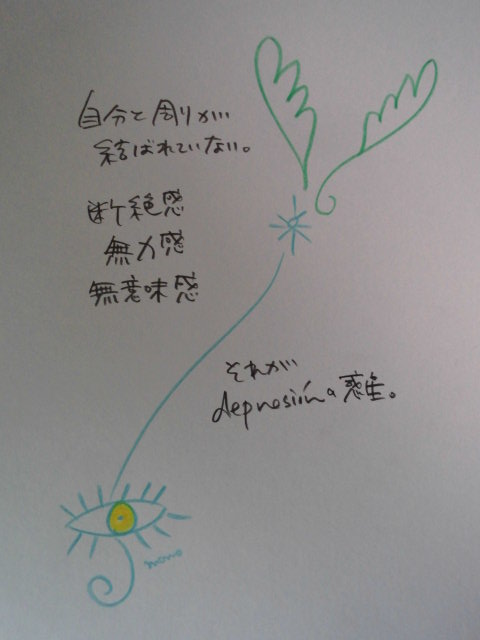 自分と周りが
結ばれていない。
断絶感
無力感
無意味感
それが
depresiónの
momo